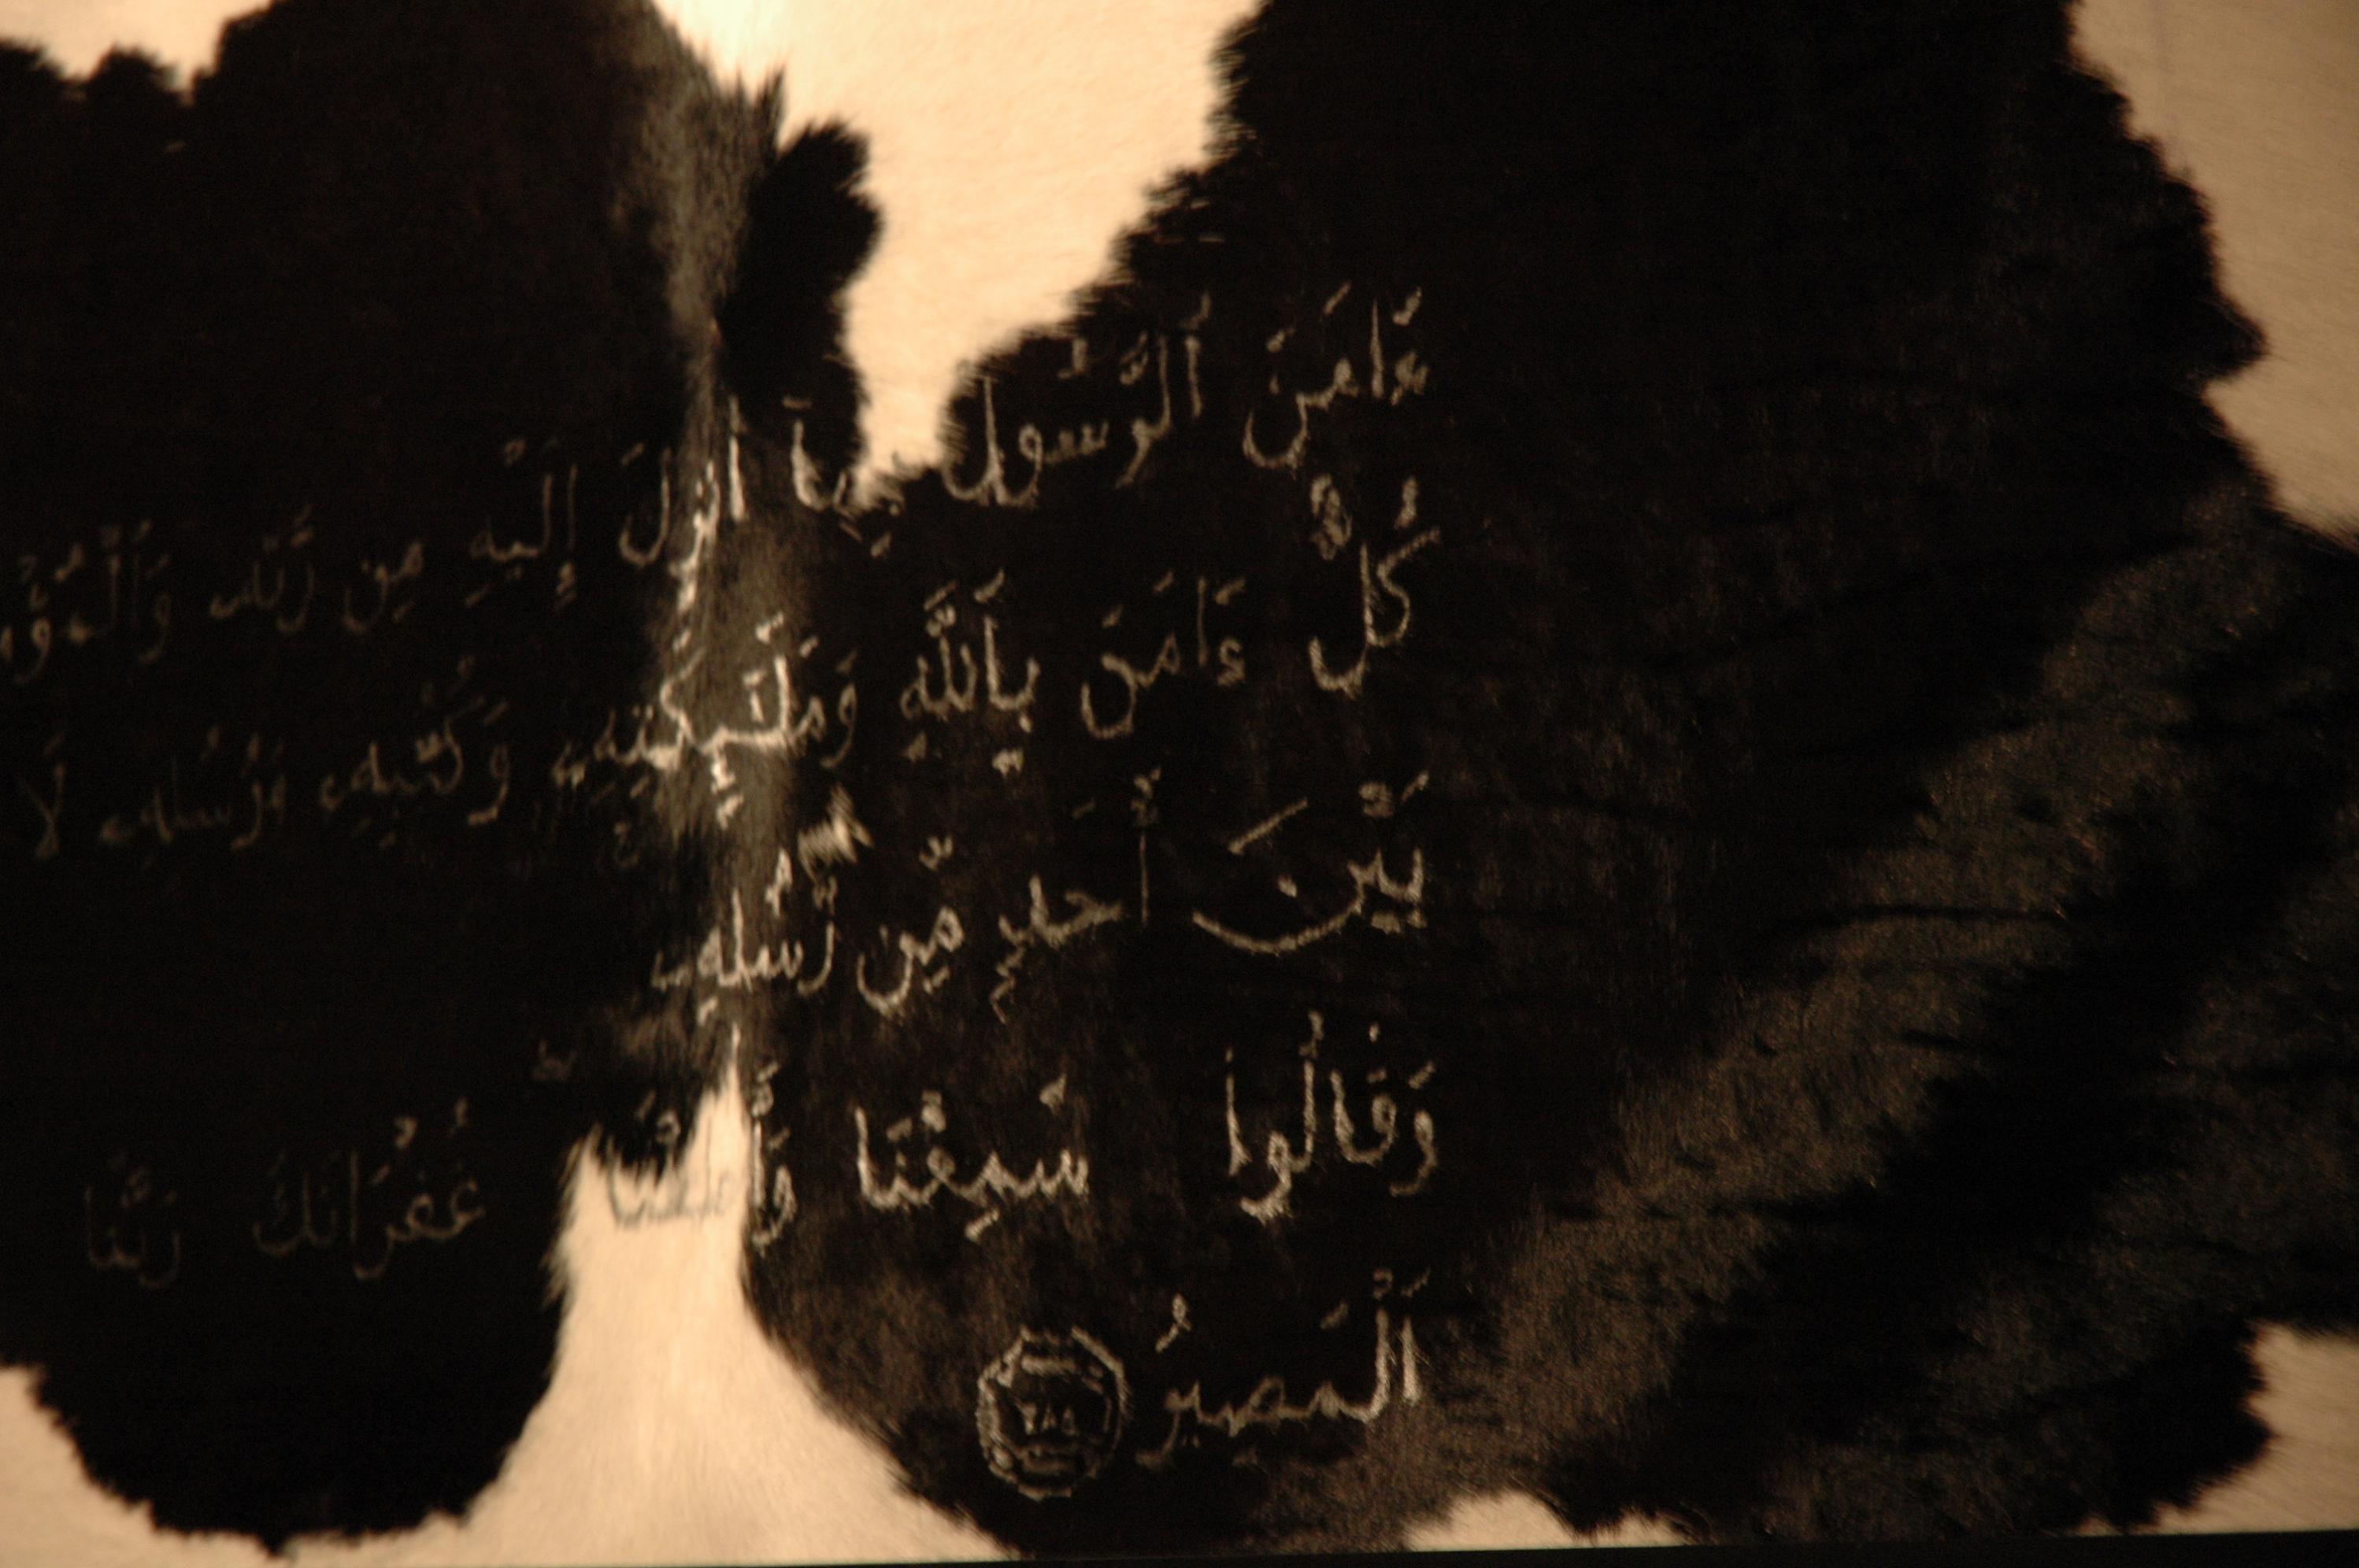 ءَامَنَ ٱلرَّسُولُ بِمَآ أُنزِلَ إِلَيْهِ مِن رَّبِّهِۦ
كُلٌّ ءَامَنَ بِٱللَّهِ وَمَلَٰٓئِكَتِهِۦ وَكُتُبِهِۦ وَرُسُلِهِۦ لَا
بَيْنَ أَحَدٍ مِّن رُّسُلِهِۦ
وَقَالُوا۟ سَمِعْنَا وَأَطَعْنَا غُفْرَانَكَ رَبَّنَا
ٱلْمَصِيرُ ٢٨٥